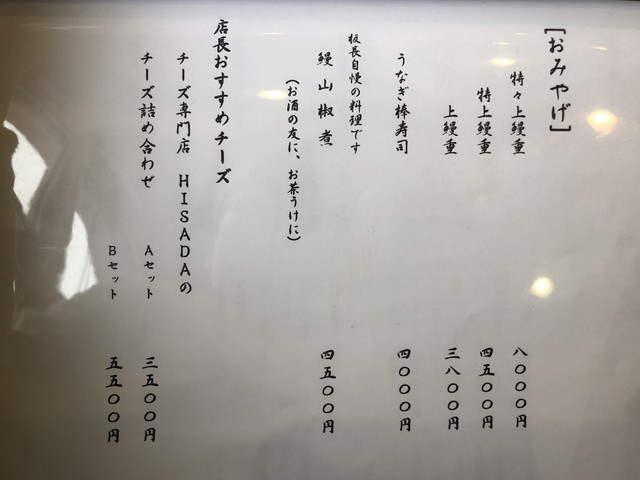 ［おみやげ］
特々上鰻重 八〇〇〇円
特上鰻重 四五〇〇円
上鰻重 三八〇〇円
うなぎ棒寿司 四〇〇〇円
板長自慢の料理です
鰻山椒煮 四五〇〇円
（お酒の友に、お茶うけに）
店長おすすめチーズ
チーズ専門店 HISADAの
チーズ詰め合わせ Aセット 三五〇〇円
Bセット 五五〇〇円